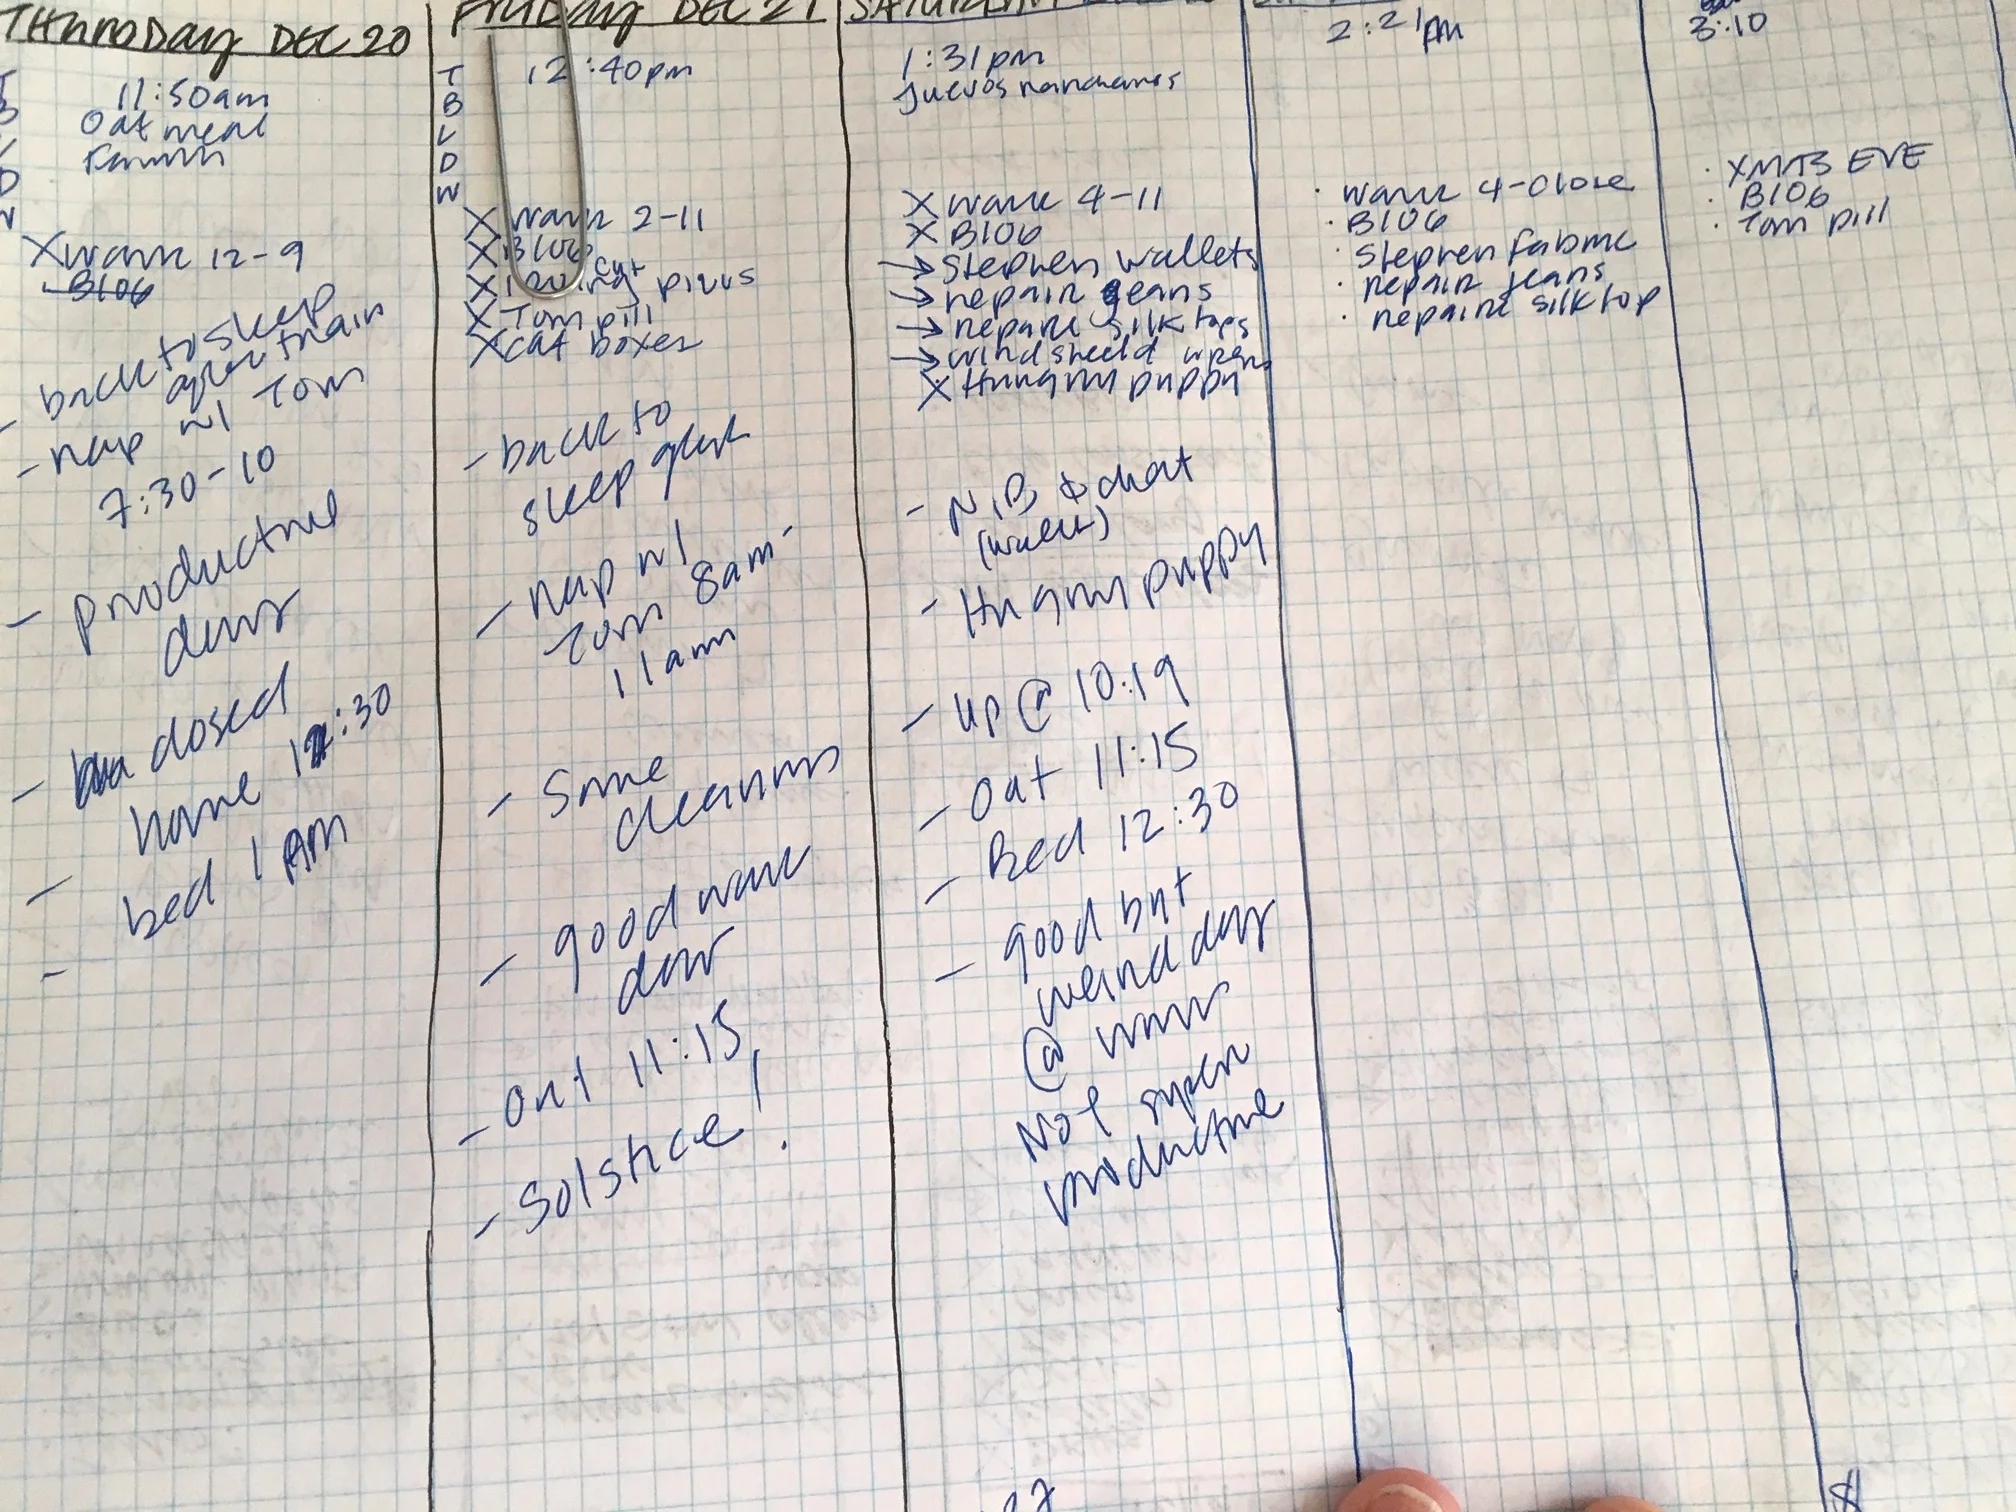 THURSDAY DEC 20
11:50am
Oatmeal
Ramen
X work 12-9
B106
- back to sleep
after train
- nap w/ Tom
7:30-10
- productive
day
- closed
home 12:30
- bed 1 AM
-
FRIDAY DEC 21
T 12:40pm
B
L
D
W
X work 2-11
X B106
X cut pixus
X Tom pill
X cat boxes
- back to
sleep
- nap w/
Tom 8am-
11am
- Some
cleaning
- good work
day
- Out 11:15
- Solstice!
SATURDAY
1:31pm
Juevos rancheros
X work 4-11
X B106
→ Stephen wallets
→ repair jeans
→ repair silk tops
→ windsheild wipers
X Hungry puppy
- N,B & chat
(work)
- Hungry puppy
- up @ 10:19
- Out 11:15
- Bed 12:30
- good but
weird day
@ work
Not super
productive
2:21pm
· work 4-close
· B106
· Stephen fabric
· repair jeans
· repair silk top
3:10
· XMAS EVE
· B106
· Tom pill